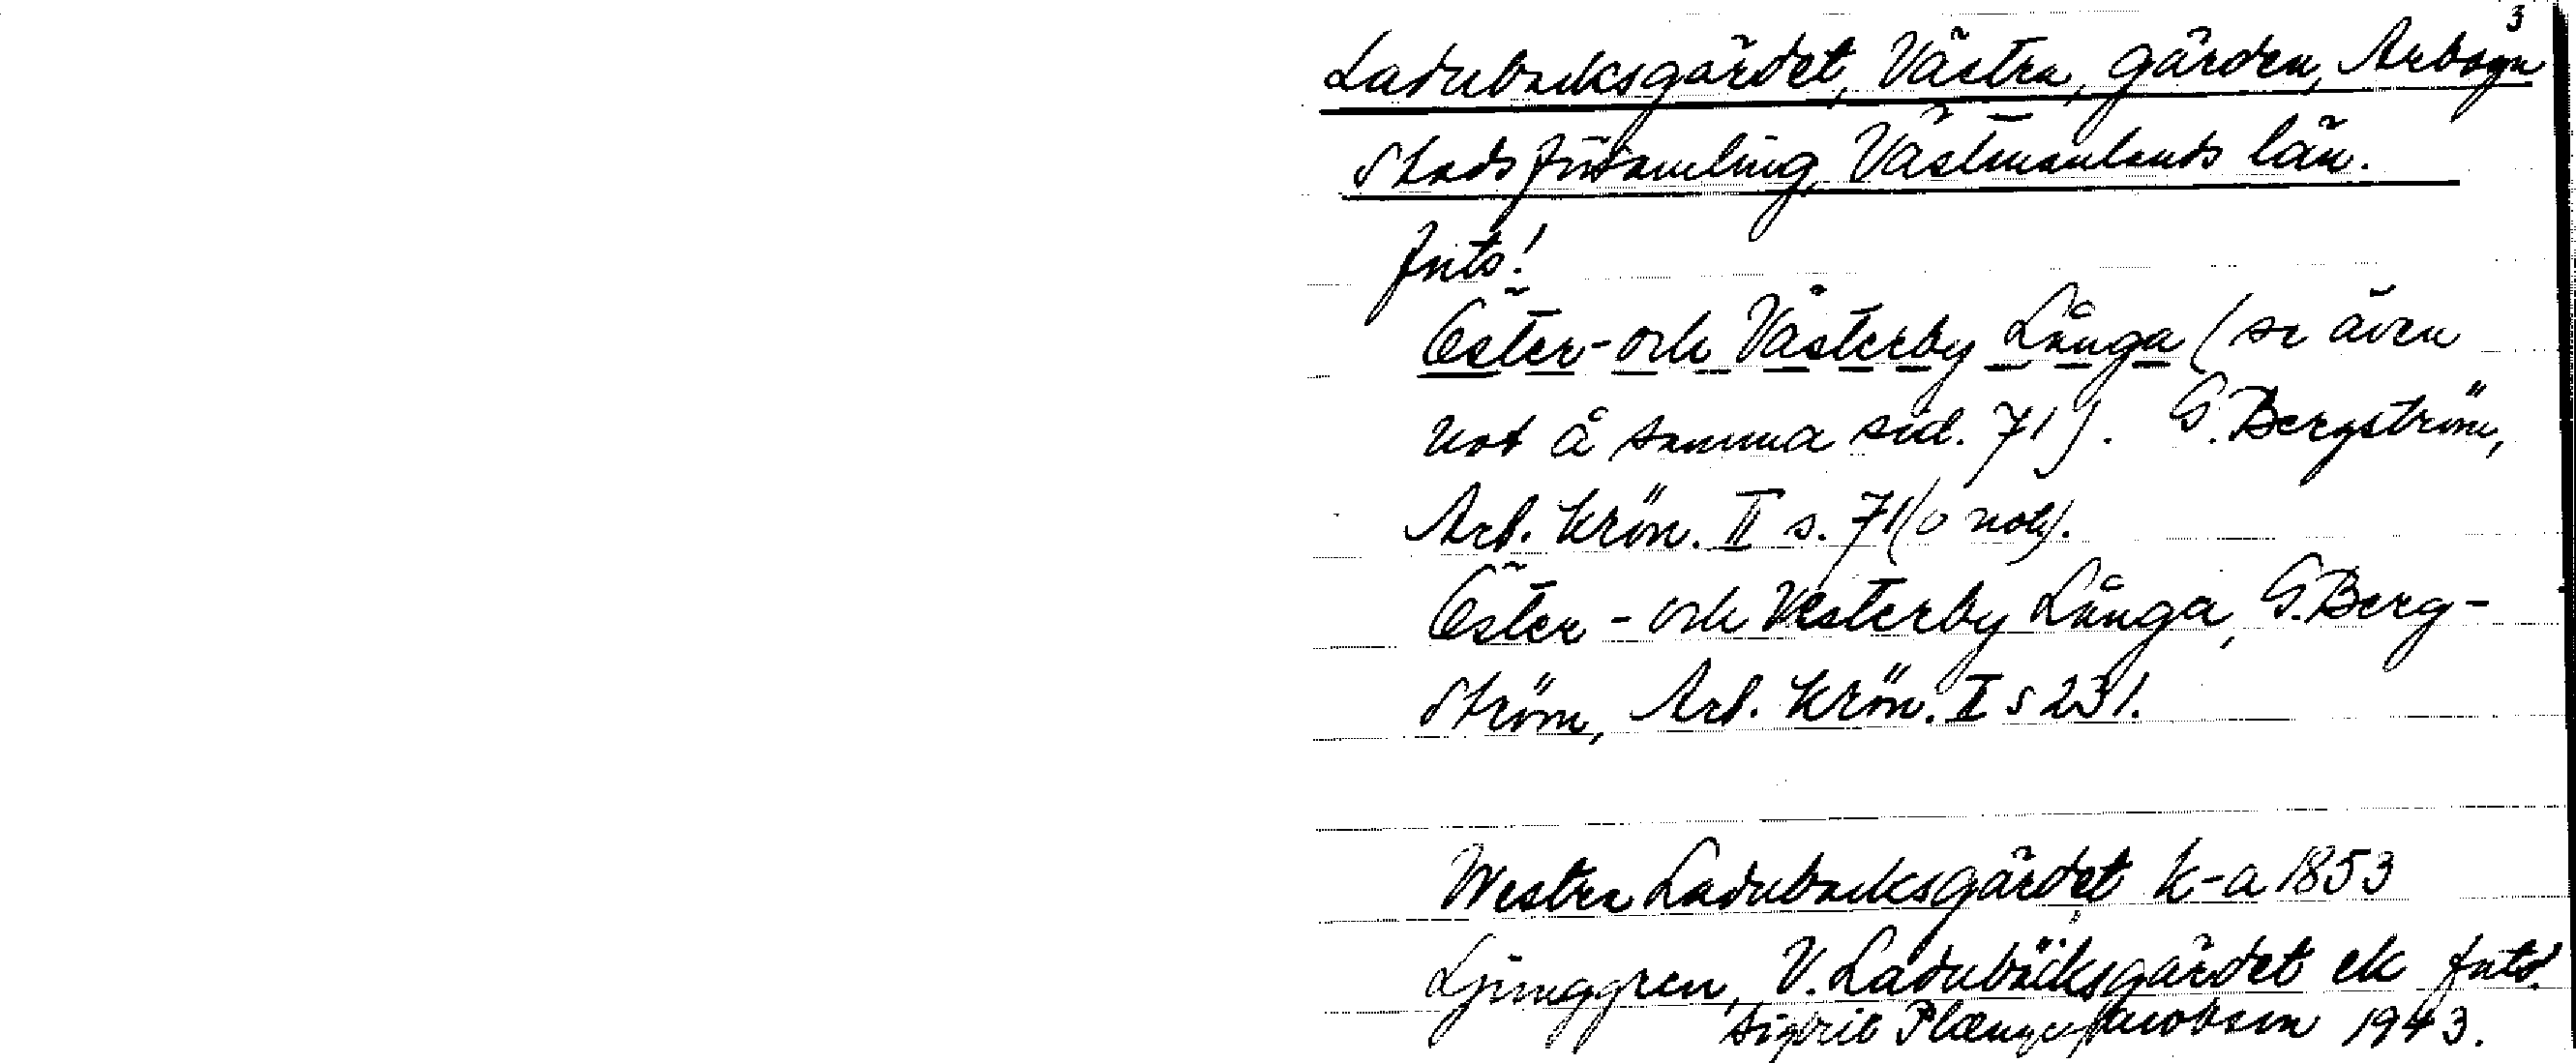 3
Ladubacksgärdet, Västra, gården, Arboga
Stadsförsamling, Västmanlands län.
forts!
Öster- och Västerby Långa (se även
not å samma sid. 71). G. Bergström,
Arb. Krön. II s. 71 (o not).
Öster- och Vesterby Långa, G. Berg-
ström, Arb. Krön. II s 231.
Westra Ladubacksgärdet k-a 1853
Ljunggren, V. Ladubäcksgärdet ek forts.
Sigfrid 1943.